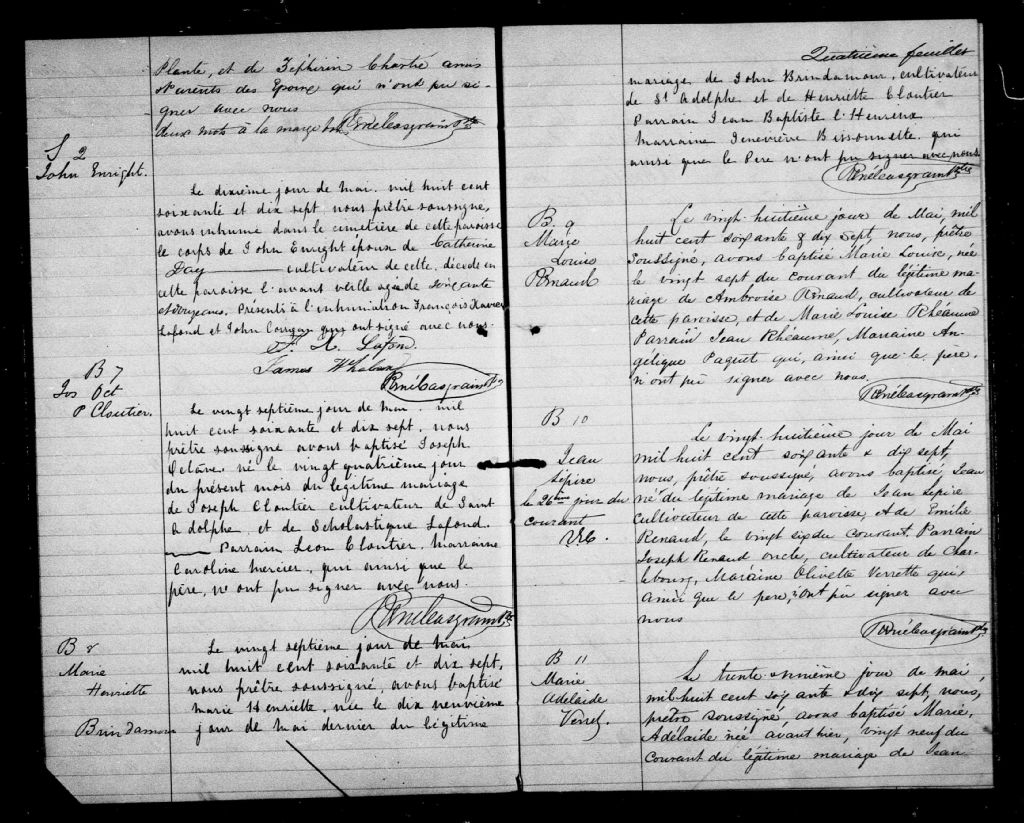 Plante, et de Zéphirin Chartié amis
et Parents des Epoux qui n'ont pu si-
gner avec nous
deux mots à la marge bon. René Casgrain Ptre
S 2
John Enright.
Le dixième jour de mai. mil huit cent
soixante et dix sept nous prêtre soussigné,
avons inhumé dans le cimetière de cette paroisse
le corps de John Enright époux de Catherine
Day cultivateur de cette, décédé en
cette paroisse l'avant veille agé de soixante
et douze ans. Présents à l'inhumation François Xavier
Lafond et John Corrigan qui ont signé avec nous.
F. X. Lafon.
James Whelan
René Casgrain Ptre
B 7
Jos Oct
P Cloutier.
Le vingt septième jour de mai. mil
huit cent soixante et dix sept. nous
prêtre soussigné avons baptisé Joseph
Octave né le vingt quatrième jour
du présent mois du légitime mariage
de Joseph Cloutier cultivateur de Saint
Adolphe et de Scholastique Lafond.
Parrain Leon Cloutier, Marraine
Caroline Mercier, qui ainsi que le
père, n'ont pu signer avec nous.
René Casgrain Ptre
B 8
Marie
Henriette
Brindamour
Le vingt septième jour de mai,
mil huit cent soixante et dix sept,
nous prêtre soussigné, avons baptisé
Marie Henriette, née le dix neuvième
jour de mai dernier du légitime
Quatrième feuillet
mariage de John Brindamour, cultivateur
de St Adolphe et de Henriette Cloutier
Parrain Jean Baptiste l'Heureux
Marraine Geneviève Bissonnette qui
ainsi que le Père n'ont pu signer avec nous.
René Casgrain Ptre
B 9
Marie
Louise
Renaud
Le vingt-huitième jour de Mai, mil
huit cent soixante & dix sept, nous, prêtre
soussigné, avons baptisé Marie Louise, née
le vingt sept du courant du légitime ma-
riage de Ambroise Renaud, cultivateur de
cette paroisse, et de Marie Louise Rhéaume
Parrain Jean Rhéaume, Marraine An-
gélique Paquet qui, ainsi que le père,
n'ont pu signer avec nous.
René Casgrain Ptre
B 10
Jean
Lépire
le 26ème jour du
courant
Le vingt-huitième jour de Mai
mil huit cent soixante & dix sept,
nous, prêtre soussigné, avons baptisé Jean
né du légitime mariage de Jean Lépire
cultivateur de cette paroisse, et de Emilie
Renaud, le vingt six du courant. Parrain
Joseph Renaud oncle, cultivateur de Char-
lebourg, Maraine Olivette Verrette qui,
ainsi que le père, n'ont pu signer avec
nous
René Casgrain Ptre
B 11
Marie
Adelaide
Verret.
Le trente-unième jour de mai
mil huit cent soixante & dix sept, nous,
prêtre soussigné, avons baptisé Marie,
Adélaide née avant hier, vingt neuf du
courant du légitime mariage de Jean